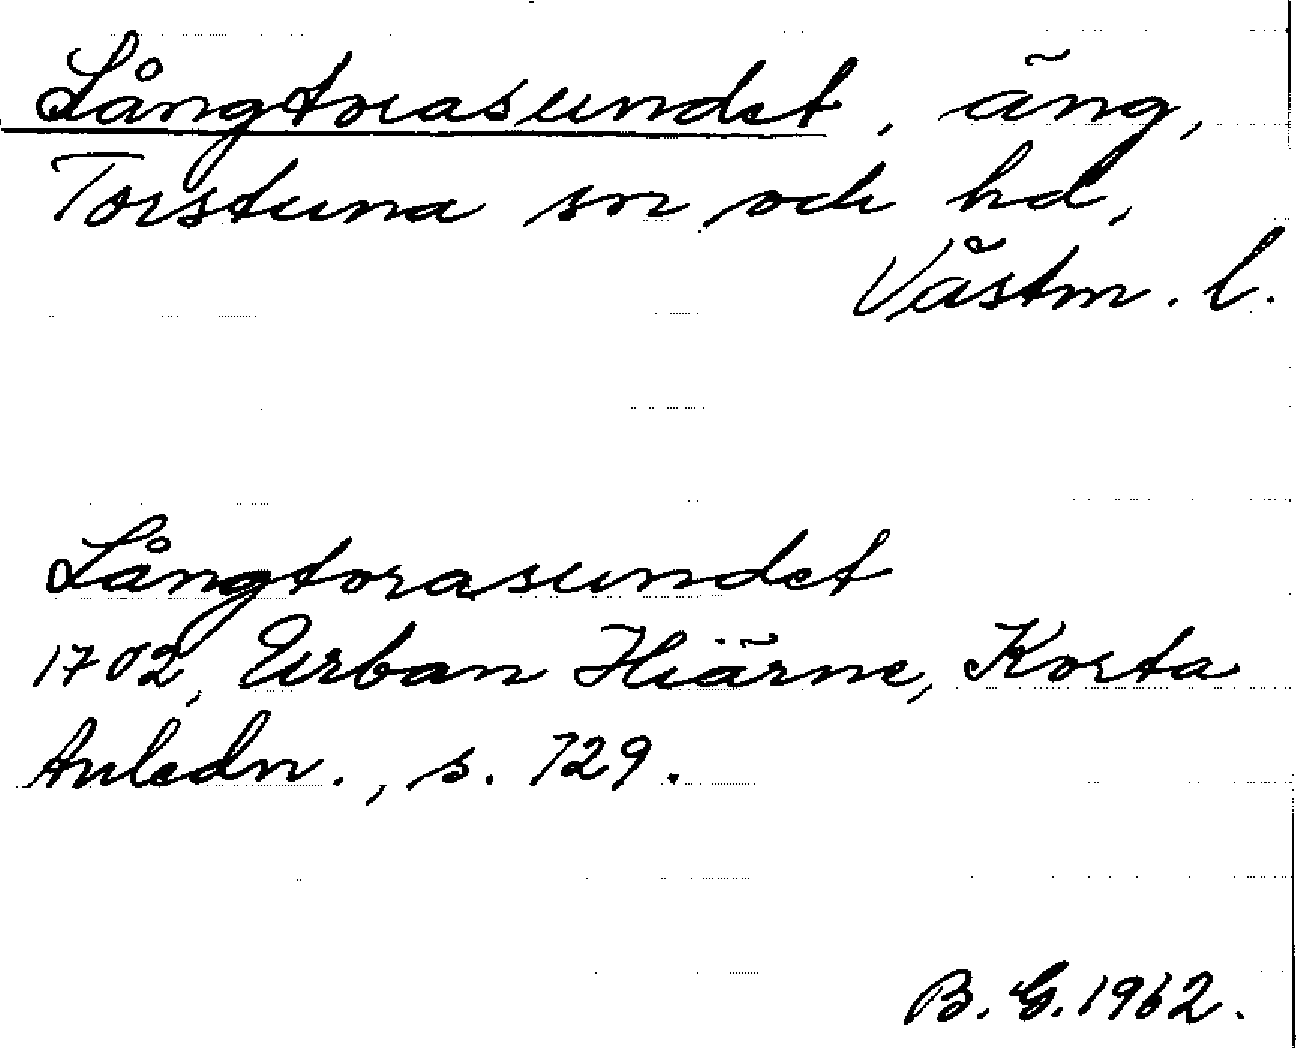 Långtorasundet, äng,
Torstuna sn och hd,
Västm. l.
Långtorasundet
1702, Urban Hiärne, Korta
Anledn., s. 729.
B. G. 1962.